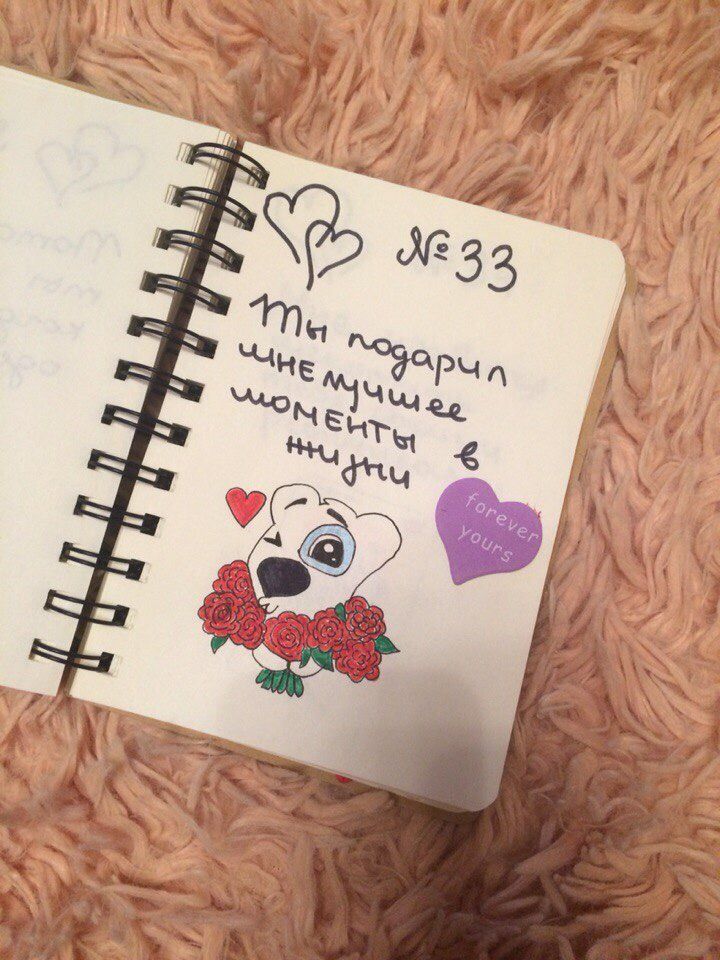 №33
Ты подарил
мне лучшее
моменты в
жизни
forever
yours